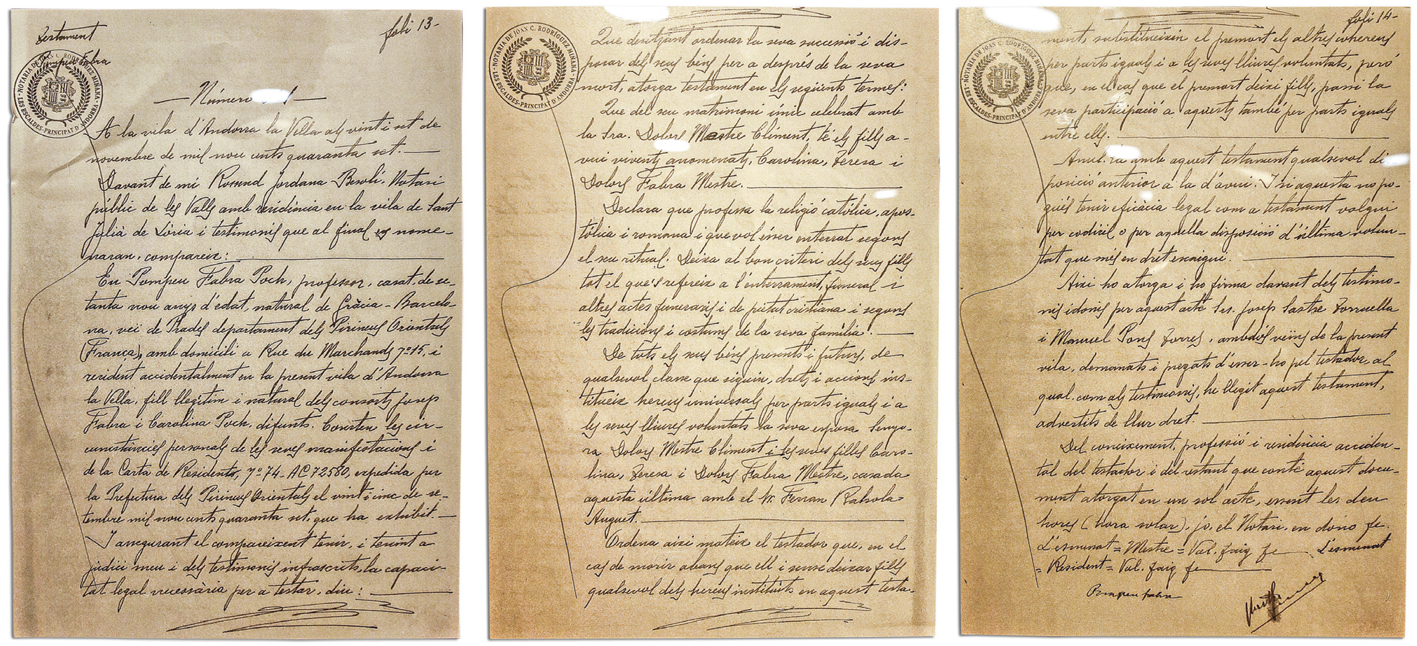 Testament
Pompeu Fabra
foli 13-
NOTARIA DE JOAN C. RODRÍGUEZ MIÑANA
LES ESCALDES-PRINCIPAT D'ANDORRA
— Número 1 —
A la vila d'Andorra la Vella als vint i set de
novembre de mil nou cents quaranta set.
Davant de mi Rossend Jordana Besolí, Notari
públic de les Valls amb residència en la vila de Sant
Julià de Lòria i testimonis que al final es nome-
naran, compareix:
En Pompeu Fabra Poch, professor, casat, de se-
tanta nou anys d'edat, natural de Gràcia - Barcelo-
na, veí de Prades departament dels Pirineus Orientals
(França), amb domicili a Rue du Marchands nº 15, i
resident accidentalment en la present vila d'Andorra
la Vella, fill llegítim i natural dels consorts Josep
Fabra i Carolina Poch, difunts. Consten les cir-
cumstàncies personals de les seves manifestacions i
de la Carta de Residents, nº 74. AC 72580, expedida per
la Prefectura dels Pirineus Orientals el vint-i-cinc de se-
tembre mil nou cents quaranta set, que ha exhibit.
I assegurant el compareixent tenir, i tenint a
judici meu i dels testimonis infrascrits, la capaci-
tat legal necessària per a testar, diu:
NOTARIA DE JOAN C. RODRÍGUEZ MIÑANA
LES ESCALDES-PRINCIPAT D'ANDORRA
Que desitjant ordenar la seva successió i dis-
posar dels seus bens per a després de la seva
mort, atorga testament en els següents termes:
Que del seu matrimoni únic celebrat amb
la Sra. Dolors Mestre Climent, té els fills a-
vui vivents anomenats, Carolina, Teresa i
Dolors Fabra Mestre.
Declara que professa la religió catòlica, apos-
tòlica i romana i que vol ésser enterrat segons
el seu ritual. Deixa al bon criteri dels seus fills
tot el que's refereix a l'enterrament, funeral i
altres actes funeraris i de pietat cristiana i segons
les tradicions i costums de la seva família.
De tots els seus béns presents i futurs, de
qualsevol classe que siguin, drets i accions ins-
titueix hereus universals per parts iguals i a
les seves lliures voluntats la seva esposa Senyo-
ra Dolors Mestre Climent i les seves filles Caro-
lina, Teresa i Dolors Fabra Mestre, casada
aquesta última amb el Sr. Ferran Rahola
Auguet.
Ordena així mateix el testador que, en el
cas de morir abans que ell i sense deixar fills
qualsevol dels hereus instituïts en aquest testa-
foli 14-
NOTARIA DE JOAN C. RODRÍGUEZ MIÑANA
LES ESCALDES-PRINCIPAT D'ANDORRA
ment, substitueixin el premort els altres hereus
per parts iguals i a les seves lliures voluntats, però
que, en el cas que el premort deixi fills, passi la
seva participació a aquests també per parts iguals
entre ells.
Anul.ra amb aquest testament qualsevol di
posició anterior a la d'avui. I si aquesta no po-
gués tenir eficàcia legal com a testament valgui
per codicil o per aquella disposició d'última volun-
tat que més en dret escaigui.
Així ho atorga i ho firma davant dels testimo-
nis idonis per aquest acte Srs. Josep Sastre Torruella
i Manuel Pons Torres, ambdós veïns de la present
vila, demanats i pregats d'ésser-ho pel testador al
qual, com als testimonis, he llegit aquest testament,
advertits de llur dret.
Del coneixement, professió i residència acciden-
tal del testador i del restant que conté aquest docu-
ment atorgat en un sol acte, essent les deu
hores (hora solar), jo, el Notari, en dono fe.
L'esmenat = Mestre = Val. faig fe L'esmenat
= Resident = Val. faig fe
Pompeu Fabra